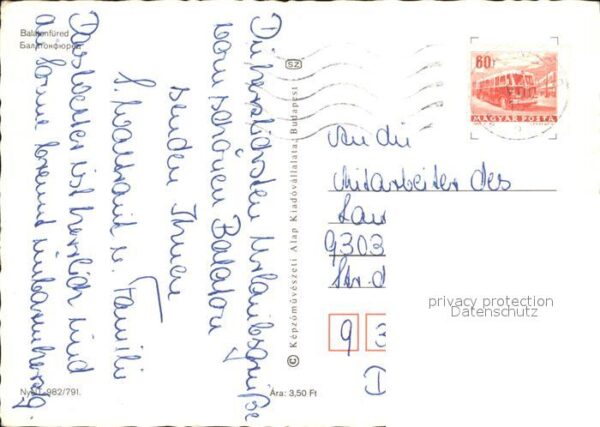 Balatonfüred
Балатонфюред
Die herzlichsten Urlaubsgrüße
vom schönen Balaton
senden Ihnen
S. Waltraud u. Familie
Das Wetter ist herrlich und
die Sonne brennt unbarmherzig.
Nyári 982/791.
Ára: 3,50 Ft
© Képzőművészeti Alap Kiadóvállalata, Budapest
SZ
60f
MAGYAR POSTA
An die
Mitarbeiter des
Lan
9303
Str. d
9 3
D
privacy protection
Datenschutz